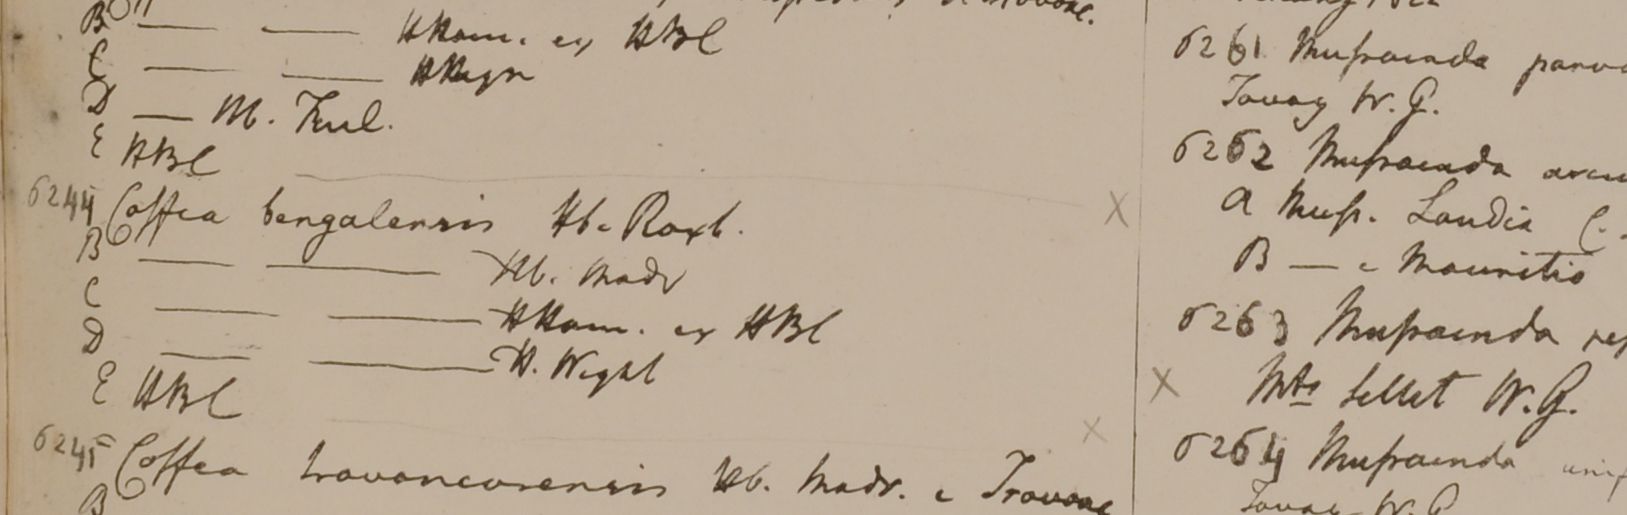 B — — HHam. ex HBC
C — — HHeyn
D — M. Kul.
E HBC
6244 Coffea bengalensis Hb. Roxb.
B — — Hb. Madr
C — — HHam. ex HBC
D — — H. Wight
E HBC
6245 Coffea travancorensis Hb. Madr. e Travanc
B
6261 Mussaenda
Tavoy W. G.
6262 Mussaenda
A Muss. Landia C.
B — e Mauritio
6263 Mussaenda
Mts Sillet W. G.
6264 Mussaenda
Tavay W. G